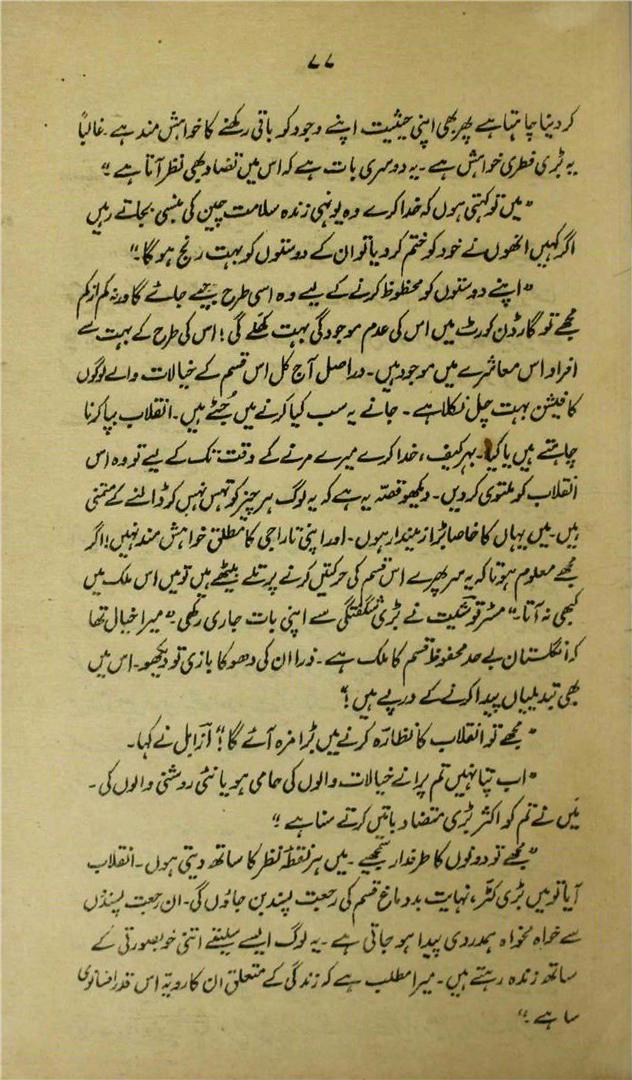 ۷۷
کر دینا چاہتا ہے پھر بھی اپنی حیثیت اپنے وجود کو باقی رکھنے کا خواہش مند ہے ۔ غالباً
یہ بڑی فطری خواہش ہے ۔ یہ دوسری بات ہے کہ اس میں تضاد بھی نظر آتا ہے ۔"
"میں تو کہتی ہوں کہ خدا کرے وہ یونہی زندہ سلامت چین کی بنسی بجاتے رہیں
اگر کہیں انھوں نے خود کو ختم کر دیا تو ان کے دوستوں کو بہت رنج ہوگا ۔"
"اپنے دوستوں کو محظوظ کرنے کے لیے وہ اسی طرح جیے جائے گا ورنہ کم از کم
مجھے تو گارڈن کورٹ میں اس کی عدم موجودگی بہت کھلے گی ؛ اس کی طرح کے بہت سے
افراد اس معاشرے میں موجود ہیں ۔ دراصل آج کل اس قسم کے خیالات والے لوگوں
کا فیشن بہت چل نکلا ہے ۔ جانے یہ سب کیا کرنے میں جُٹے ہیں ۔ انقلاب بپا کرنا
چاہتے ہیں یا کیا ۔ بہر کیف ، خدا کرے میرے مرنے کے وقت تک کے لیے تو وہ اس
انقلاب کو ملتوی کر دیں ۔ دیکھو قصّہ یہ ہے کہ یہ لوگ ہر چیز کو تہس نہس کر ڈالنے کے متمنی
ہیں ۔ میں یہاں کا خاصا بڑا زمیندار ہوں ۔ اور اپنی تاراجی کا مطلق خواہش مند نہیں ؛ اگر
مجھے معلوم ہوتا کہ یہ سر پھرے اس قسم کی حرکتیں کرنے پر تلے بیٹھے ہیں تو میں اس ملک میں
کبھی نہ آتا ۔" مسٹر توشیت نے بڑی شگفتگی سے اپنی بات جاری رکھی ۔ "میرا خیال تھا
کہ انگلستان بے حد محفوظ قسم کا ملک ہے ۔ ذرا ان کی دھوکا بازی تو دیکھو ۔ اس میں
بھی تبدیلیاں پیدا کرنے کے درپے ہیں !"
"مجھے تو انقلاب کا نظارہ کرنے میں بڑا مزہ آئے گا !" ازابل نے کہا ۔
"اب پتا نہیں تم پرانے خیالات والوں کی حامی ہو یا نئی روشنی والوں کی ۔
میں نے تم کو اکثر بڑی متضاد باتیں کرتے سنا ہے ۔"
"مجھے تو دونوں کا طرفدار سمجھیے ۔ میں ہر نقطۂ نظر کا ساتھ دیتی ہوں ۔ انقلاب
آیا تو میں بڑی کٹّر ، نہایت بددماغ قسم کی رجعت پسند بن جاؤں گی ۔ ان رجعت پسندوں
سے خواہ مخواہ ہمدردی پیدا ہو جاتی ہے ۔ یہ لوگ ایسے سلیقے اتنی خوبصورتی کے
ساتھ زندہ رہتے ہیں ۔ میرا مطلب ہے کہ زندگی کے متعلق ان کا رویہ اس قدر افسانوی
سا ہے ۔"